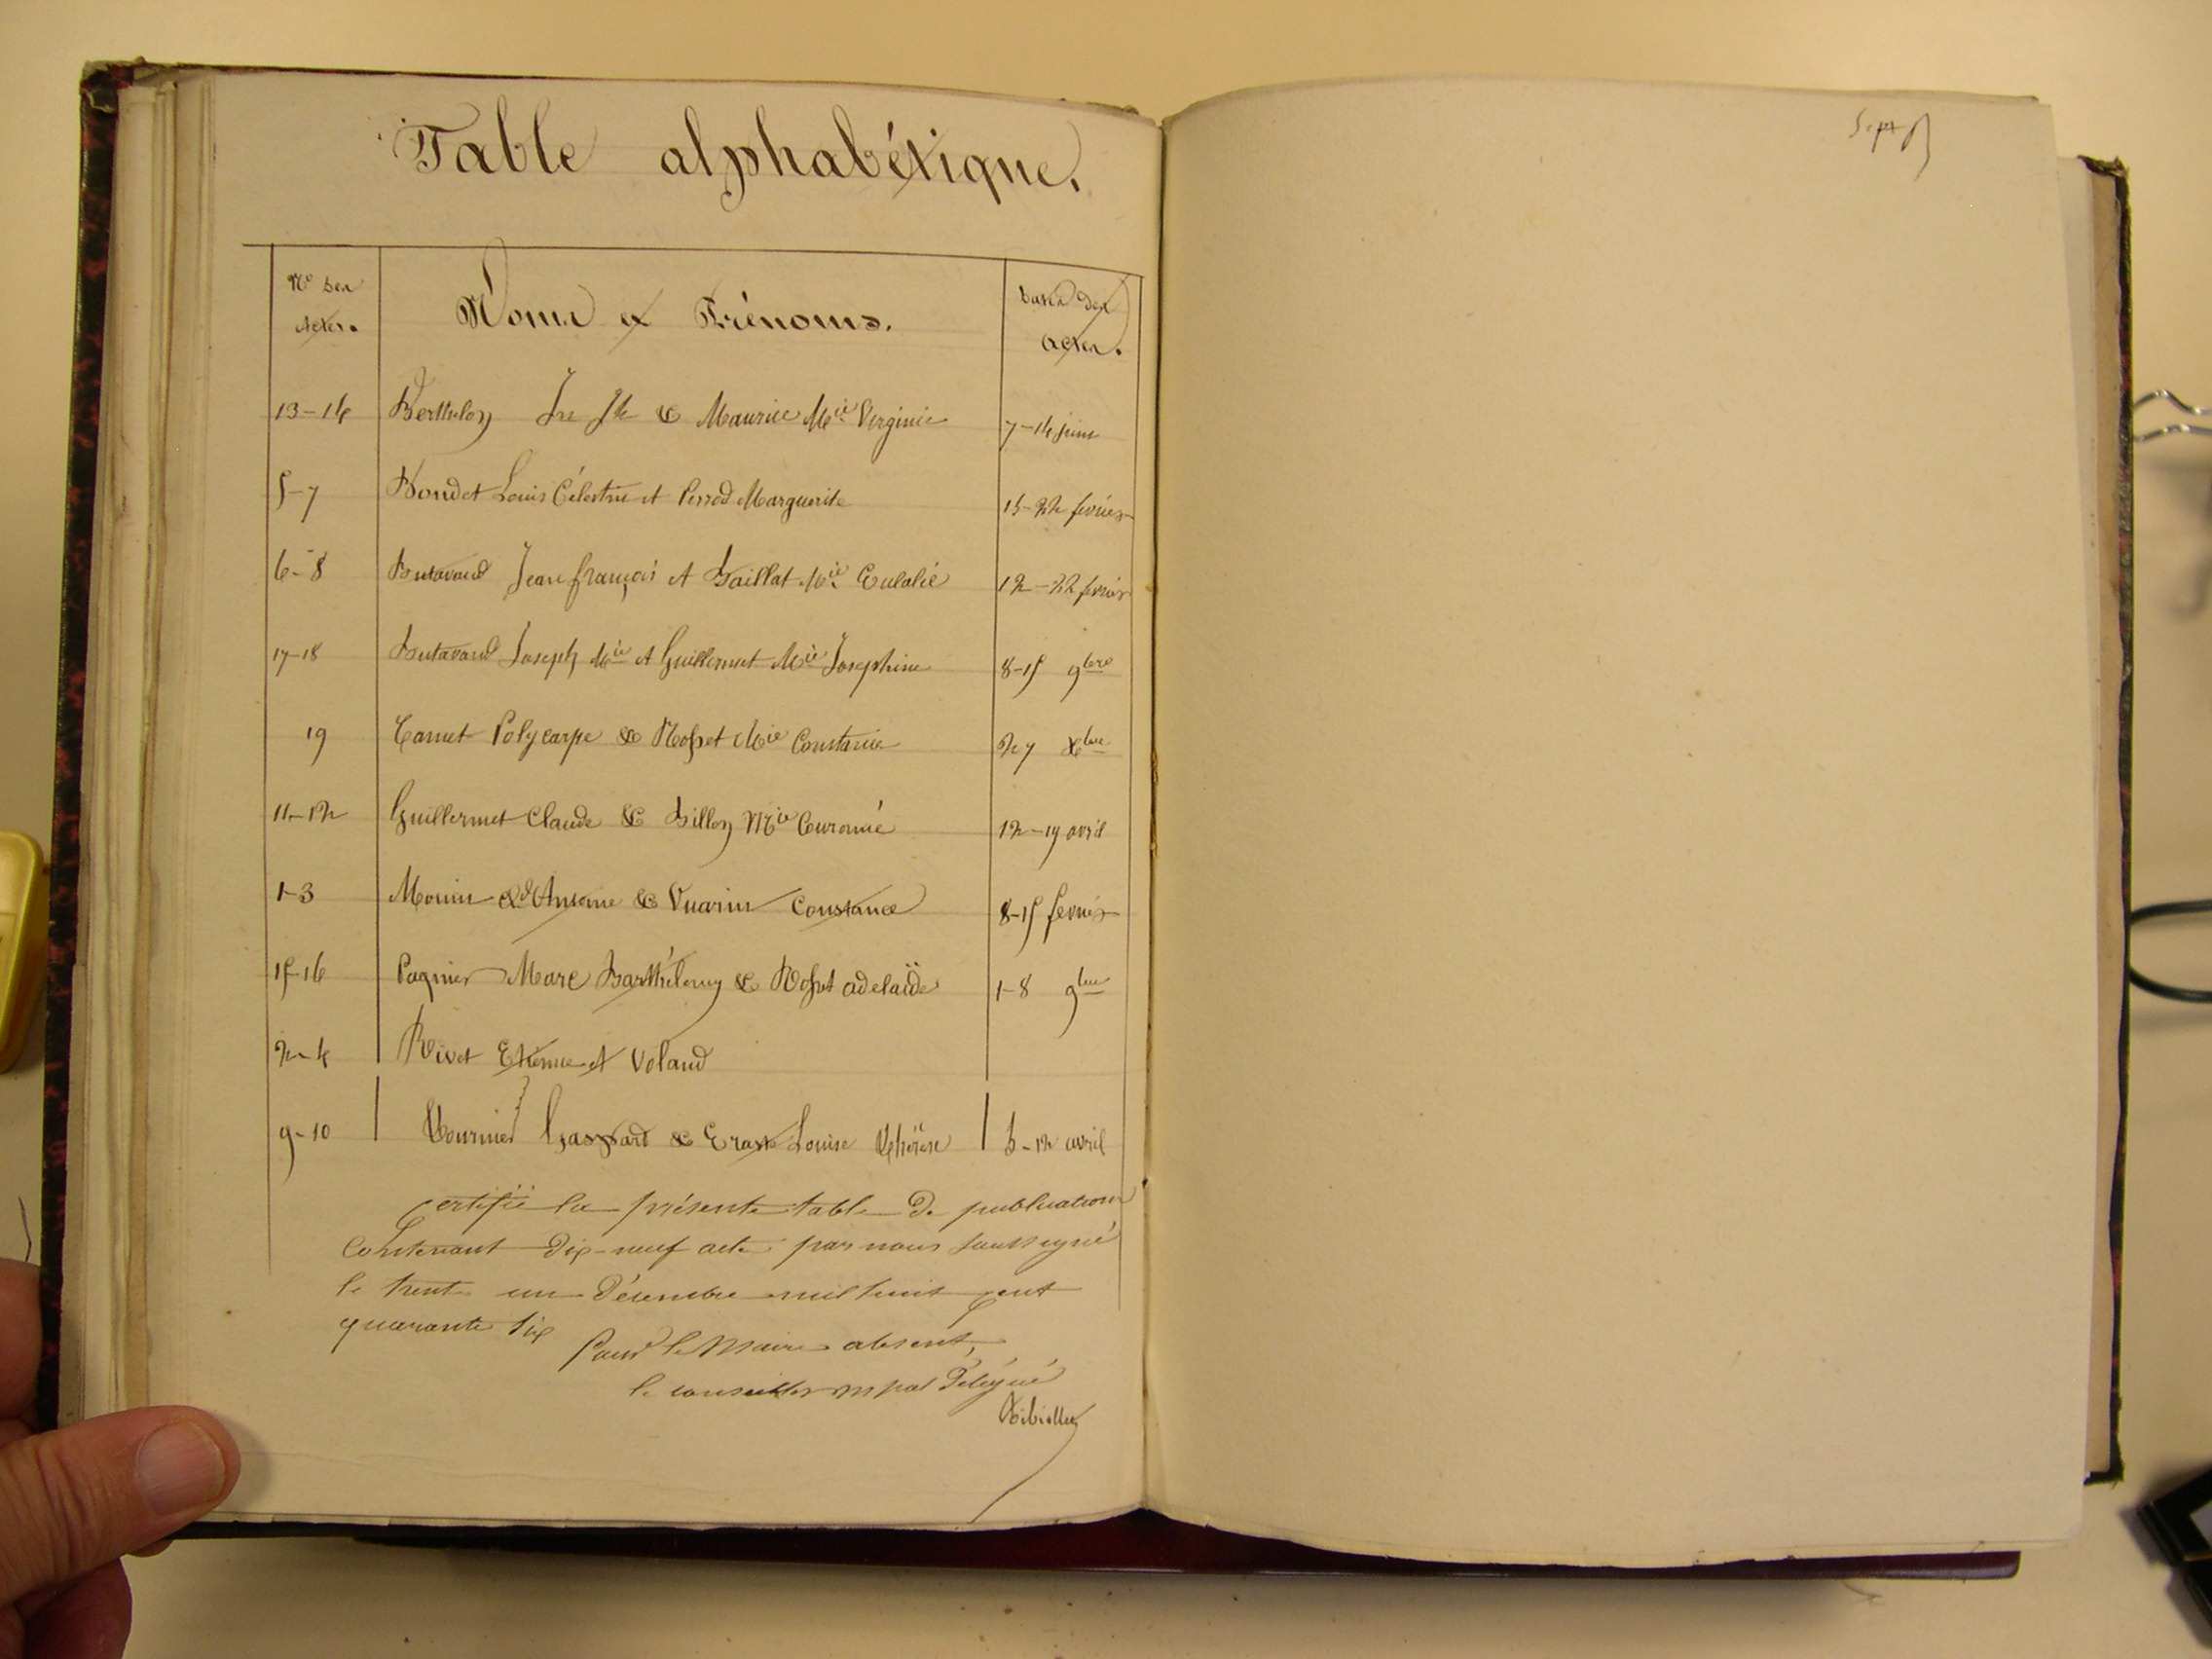 Table alphabétique.
Nos des Actes. Noms et Prénoms. Dates des Actes.
13-14 Berthelon Jn Jh & Maurice Mie Virginie 7-14 juin
5-7 Bondet Louis Célestin et Perrod Marguerite 15-22 février
6-8 Butavand Jean françois et Gaillat Mie Eulalie 12-22 février
17-18 Butavand Joseph Mie et Guillermet Mie Joséphine 8-15 9bre
19 Carnet Polycarpe & Rosset Mie Constance 27 Xbre
11-12 Guillermet Claude & Billon Mie 12-19 avril
1-3 Monin Antoine & Vuarin Constance 8-15 février
15-16 Pagnier Marc Barthélemy & Rosset adelaïde 1-8 9bre
2-4 Rivet Etienne et Voland
9-10 Tournier Gaspard & Louise Thérèse 5-12 avril
Certifié la présente table de publication
Contenant dix-neuf acte par nous soussigné
le trente un Décembre mil huit cent
quarante six
Pour le Maire absent,
le conseiller mpal délégué
Sept